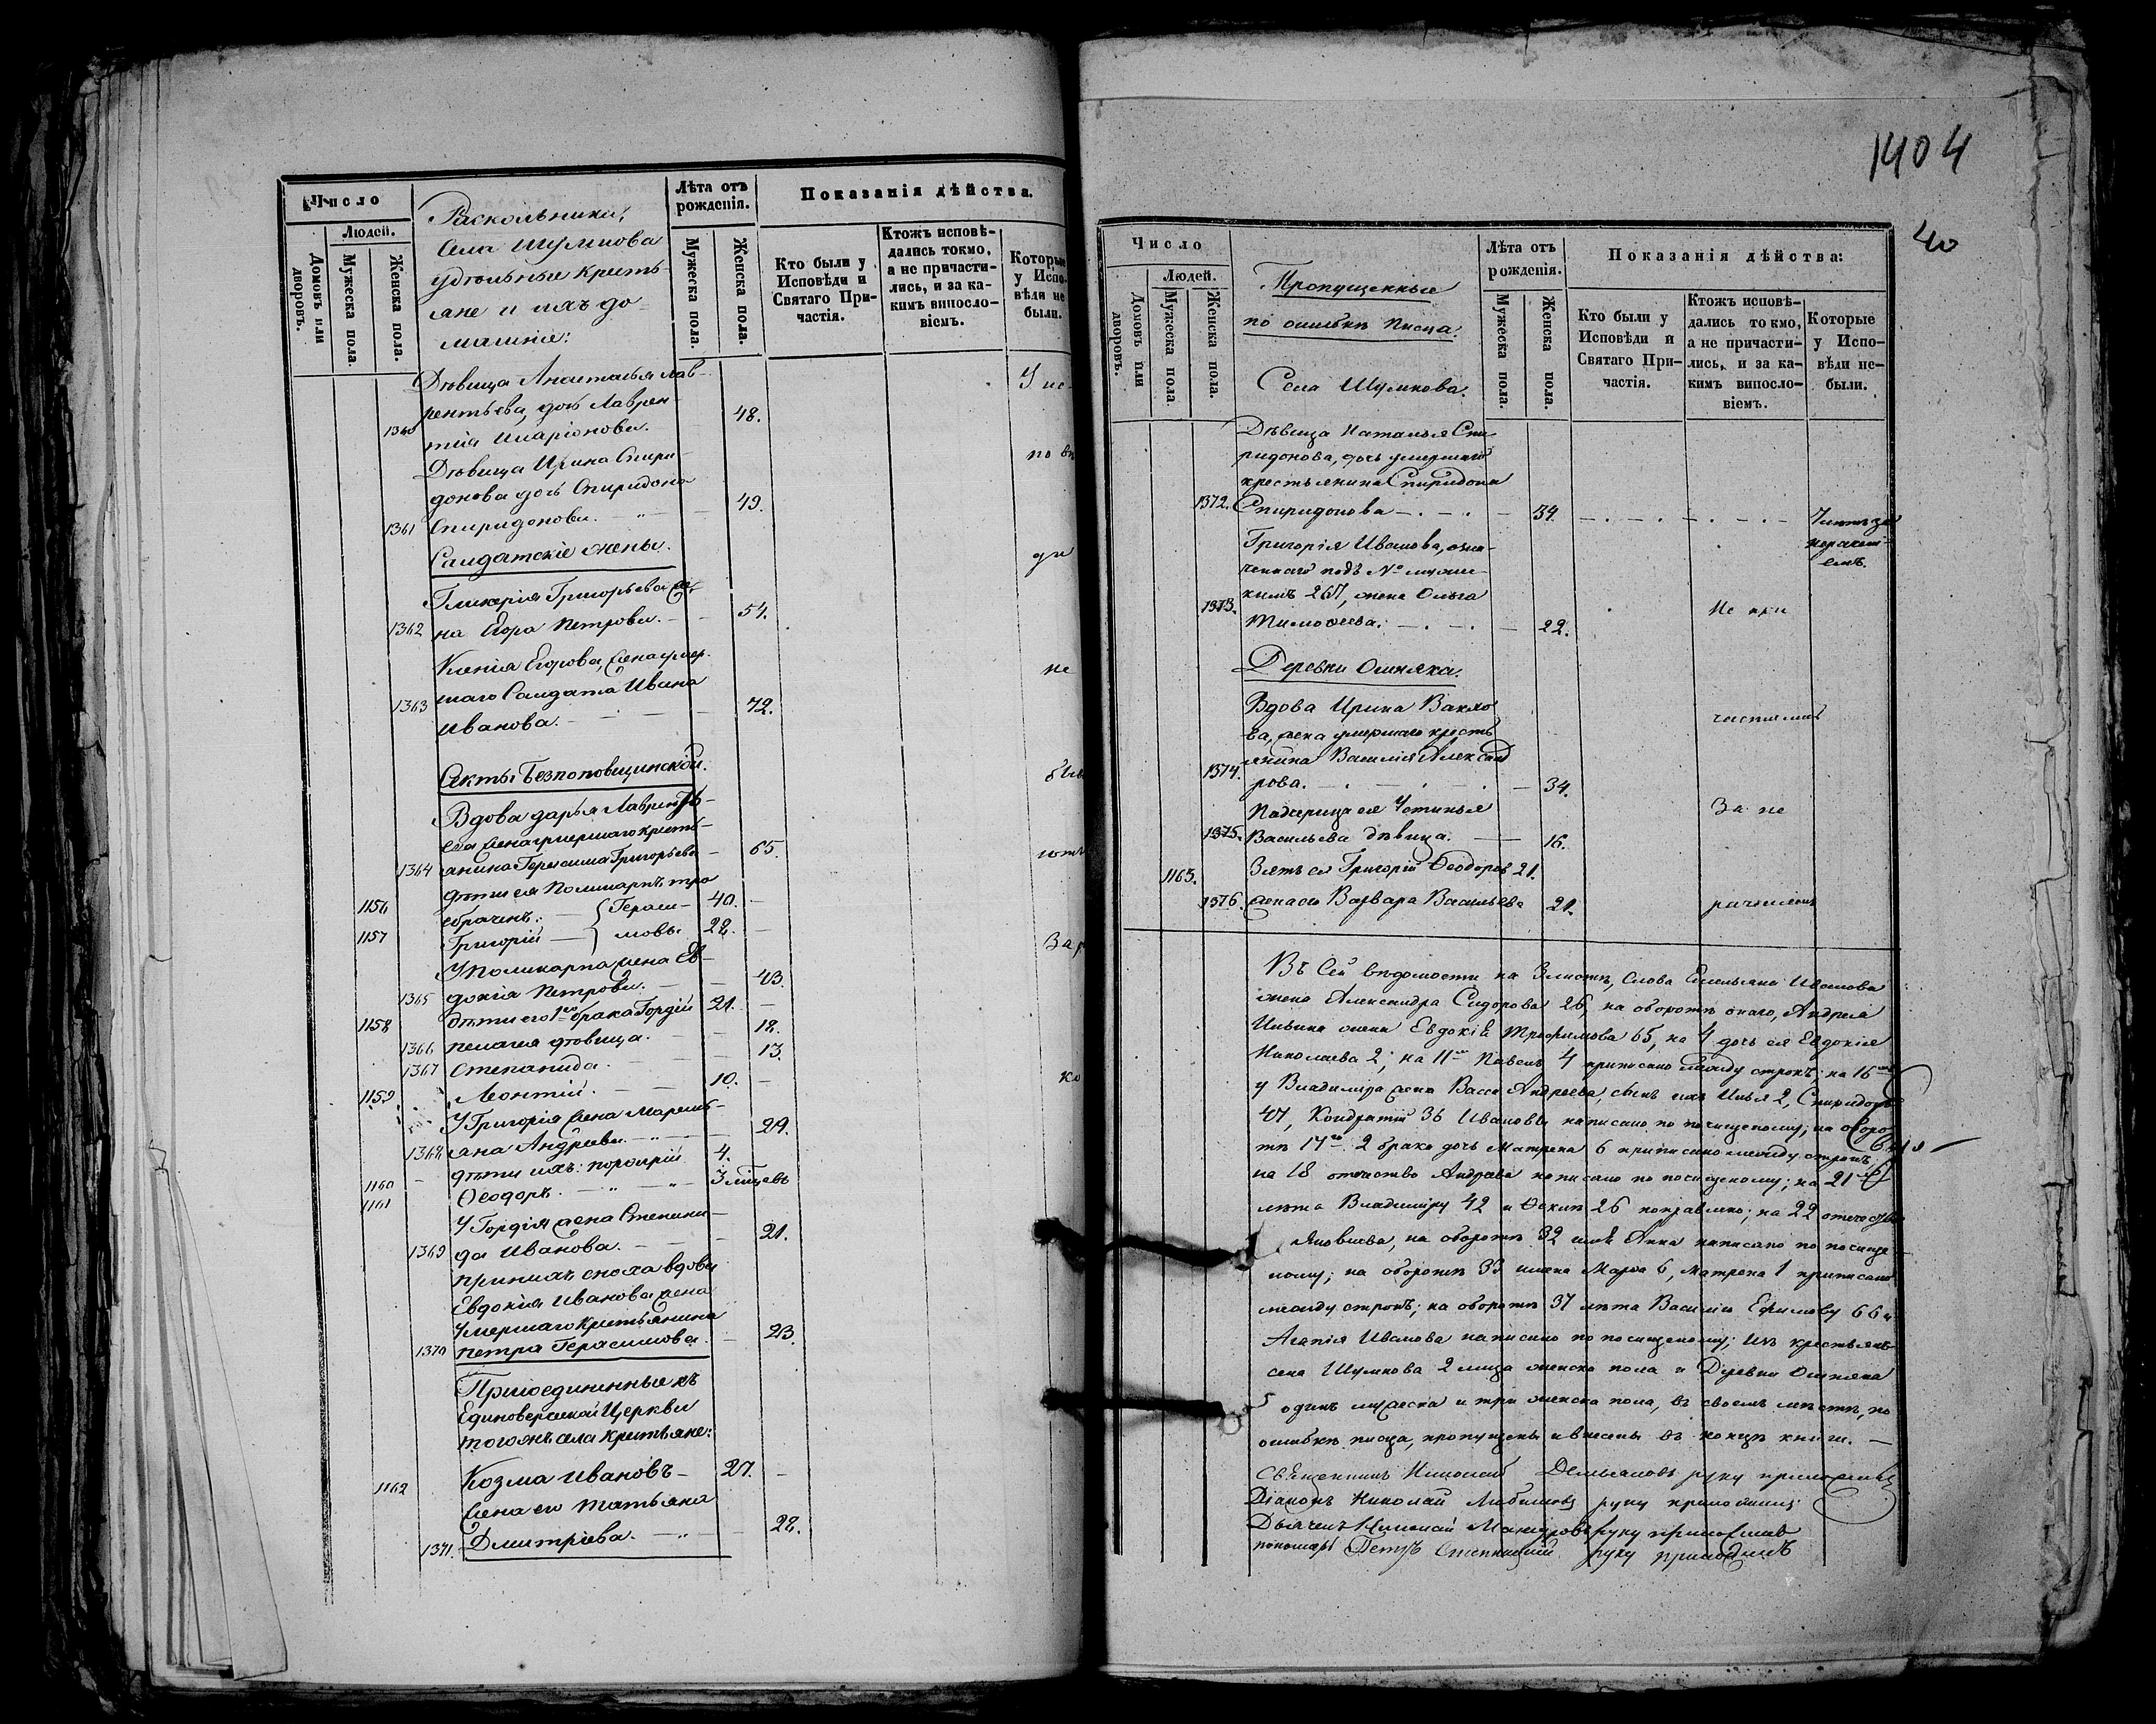 Число
Людей.
Домовъ или дворовъ.
Мужеска пола.
Женска пола.
Раскольники,
Села Шумкова
удѣльные кресть-
яне и ихъ до-
машніе:
Лѣта отъ
рожденія.
Мужеска пола.
Женска пола.
Показанія дѣйства.
Кто были у
Исповѣди и
Святаго При-
частія.
Ктожъ исповѣ-
дались токмо,
а не причасти-
лись, и за ка-
кимъ винословіемъ.
Которые
у Испо-
вѣди не
были.
Дѣвица Анастасья Лав-
рентьева, дочь Лаврен-
1360 тія Иларіонова. 48.
Дѣвица Ирина Спири-
донова дочь Спиридона
1361 Спиридонова. 49.
Салдатскіе жены.
Гликерія Григорьева же-
1362 на Егора Петрова. 54.
Ксенія Егорова, жена умер-
1363 шаго Салдата Ивана 72.
Иванова.
Секты Безпоповщинской.
Вдова Дарья Лавренть-
ева жена умершаго кресть-
1364 янина Герасима Григорьева 65.
дѣти ея Поликарпъ тро
1156 ебраченъ: Гераси- 40.
1157 Григорій мовы 28.
У Поликарпа жена Ев-
1365 докія Петрова. 43.
1158 дѣти его 1го брака Гордій 21.
1366 Пелагея дѣвица. 18.
1367 Степанида. 13.
1159 Леонтій. 10.
У Григорія жена Марем-
1368 яна Андреева. 29.
1160 дѣти ихъ: Порфирій 4.
1161 Ѳеодоръ. 3 мѣцевъ
У Гордія жена Степани-
1369 да Иванова. 21.
При нихъ сноха вдова
Евдокія Иванова жена
Умершаго Крестьянина
1370 Петра Герасимова. 23.
Присоединенные къ
Единоверческой Церкви
того жъ села Крестьяне:
1162 Козма Ивановъ 27.
Жена его Татьяна
1371. Дмитріева. 28.
1404
40
Число
Людей.
Домовъ или дворовъ.
Мужеска пола.
Женска пола.
Пропущенные
по ошибкѣ писца.
Села Шумкова.
Лѣта отъ
рожденія.
Мужеска пола.
Женска пола.
Показанія дѣйства:
Кто были у
Исповѣди и
Святаго При-
частія.
Ктожъ исповѣ-
дались токмо,
а не причасти-
лись, и за ка-
кимъ винословіемъ.
Которые
у Испо-
вѣди не-
были.
Дѣвица Наталья Спи
ридонова, дочь умершаго
крестьянина Спиридона
1372. Спиридонова 34.
Григорія Иванова, озна-
ченнаго подъ № мужес-
кимъ 267, жена Ольга
1373. Тимоѳеева. 22. Не при
Деревни Ошняка.
Вдова Ирина Вакхо
ва, жена умершаго кресть частились
янина Василія Александ
1374. рова. 34.
Падчерица ея Устинья За не
1375. Васильева дѣвица. 16.
1163. Зять ея Григорій Ѳеодоровъ 21.
1376. жена его Варвара Васильева 21. раченіемъ
Въ Сей вѣдомости на 3 листѣ, слова Емельяна Иванова
жена Александра Сидорова 26, на оборотѣ онаго, Андрея
Ильина жена Евдокія Трофимова 65, на 4 дочь ея Евдокія
Николаева 2; на 11мъ Павелъ 4 приписано между строкъ; на 16мъ
у Владиміра жена Васса Андреева, сынъ ихъ Илья 2, Спиридонъ
47, Кондратій 36 Ивановы написано по почищеному; на оборо
тѣ 17го 2 брака дочь Матрена 6 приписано между строкъ,
на 18 отечество Андреева написано по почищеному; на 21
лѣта Владиміру 42 и Ѳеклѣ 26 поправлено; на 22 отечество
Яковлева, на оборотѣ 32 имя Анна написано по почище-
ному; на оборотѣ 33 имена Марѳа 6, Матрена 1 приписано
между строкъ; на оборотѣ 37 лѣта Василію Ефимову 66 и
Агапія Иванова написано по почищеному; Изъ крестьянъ
села Шумкова 2 лица женска пола и Деревни Ошняка
одинъ мужеска и три женска пола, въ своемъ мѣстѣ, по
ошибкѣ писца, пропущены и внесены въ концѣ книги.
Священникъ Николай руку приложилъ
Діаконъ Николай Любимовъ руку приложилъ
Дьячекъ Николай руку приложилъ
пономарь Петръ руку приложилъ